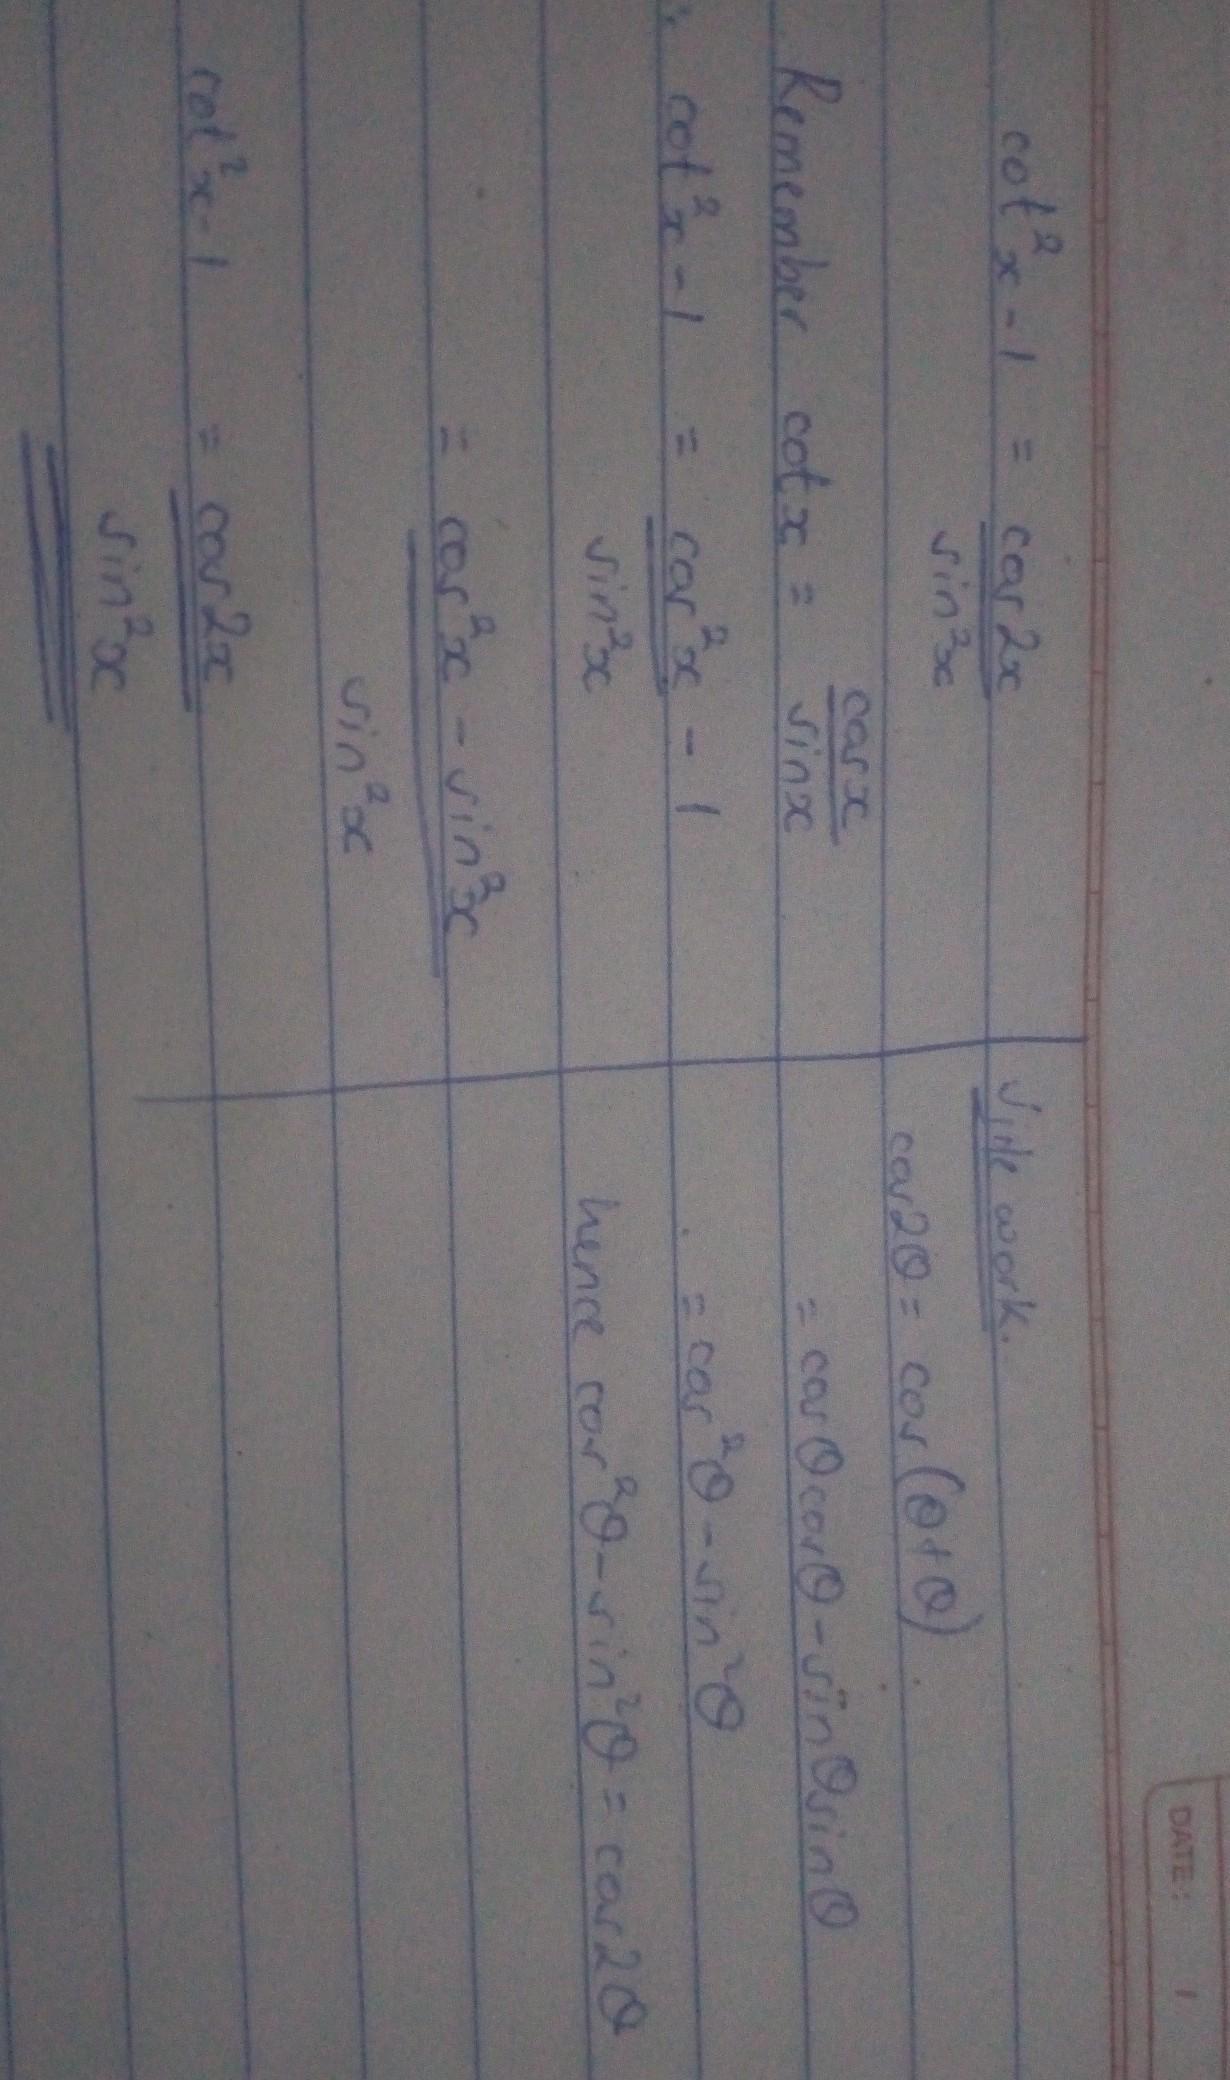 DATE: /
cot²x - 1 = cos2x
sin²x
Remember cotx = cosx
sinx
∴ cot²x - 1 = cos²x - 1
sin²x
= cos²x - sin²x
sin²x
cot²x - 1 = cos2x
sin²x
Side work.
cos2θ = cos(θ+θ)
= cosθcosθ - sinθsinθ
= cos²θ - sin²θ
hence cos²θ - sin²θ = cos2θ